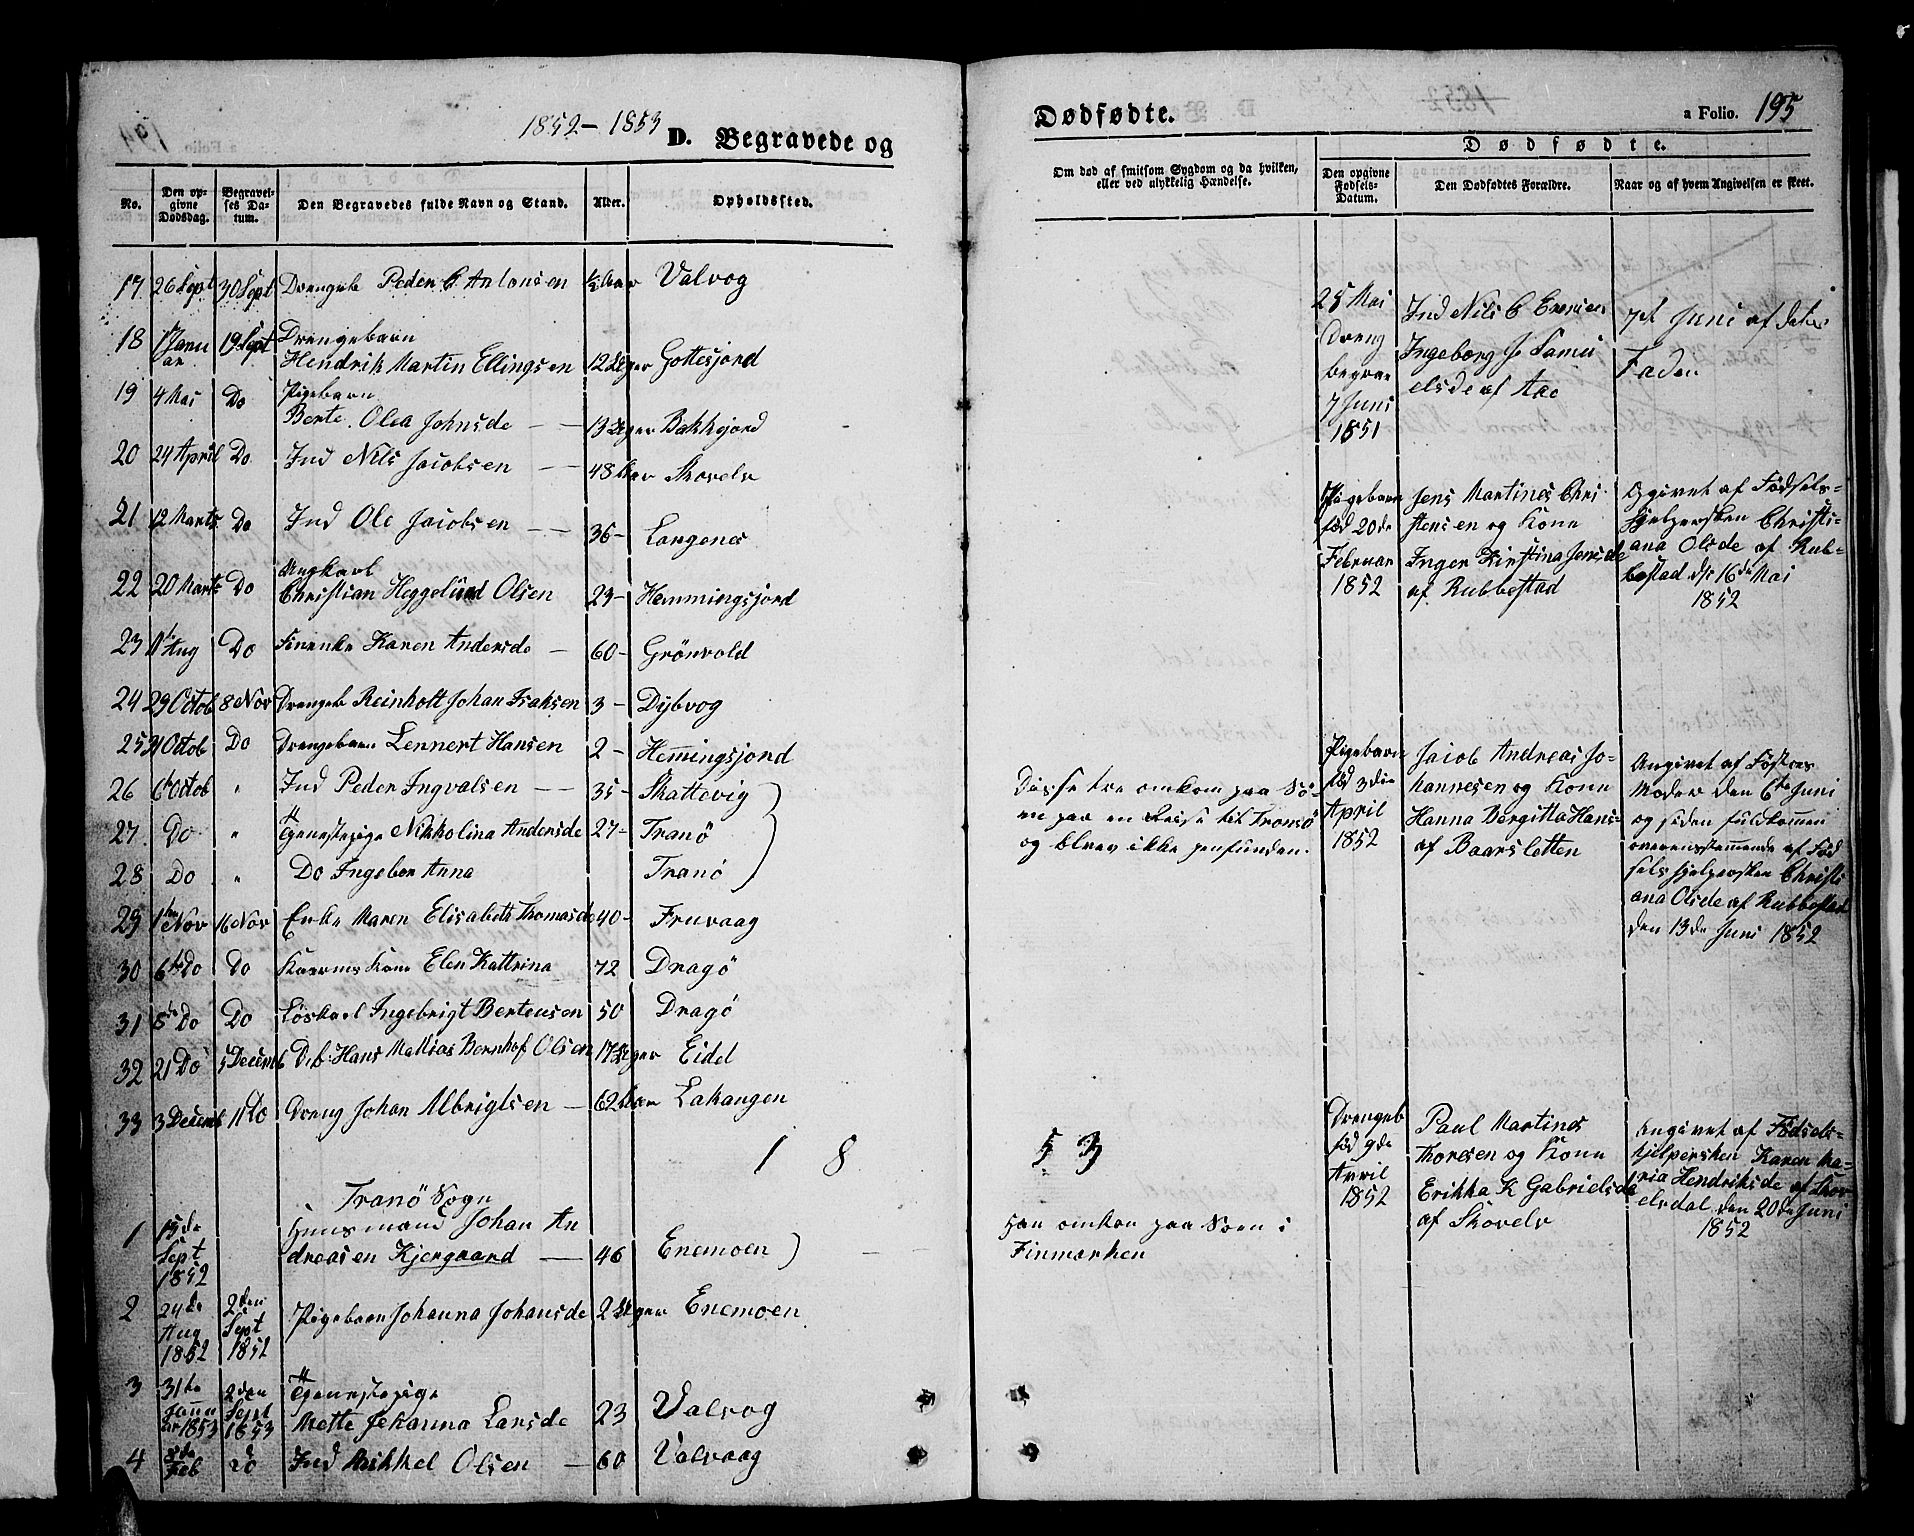 1852-1853
D. Begravede og
No.
Den op-
givne
Dødsdag.
Begravel-
ses Da-
tum.
Den Begravedes fulde Navn og Stand.
Alder.
Opholdssted.
17 26 Sept 30 Sept Drengeb Peder C Antonsen ½ Aar Valvog
18 1 Janu
ar 19 Sept Drengebarn
Hendrik Martin Ellingsen 12 Uger Gottesjord
19 4 Mai Do Pigebarn
Berte Olea Johnsde 13 Uger Bakkejord
20 24 April Do Ind Nils Jacobsen 48 Aar Skovelv
21 12 Marts Do Ind Ole Jacobsen 36 - Langenes
22 20 Marts Do Ungkarl
Christian Heggelund Olsen 23 - Hemmingsjord
23 1te
Aug Do Karen Andersde 60 - Grönvold
24 29 Octob 8 Nov Drengeb Reinholt Johan Isaksen 3 - Dybvog
25 31 Octob Do Drengebarn Lennert Hansen 2 - Hemingsjord
26 6te Octob " Ind Peder Ingvalsen 35 - Skattevig
27 Do " Tjenestepige Nikkolina Andersde 27 - Tranö
28 Do " Do Ingebor Anna Tranö
29 1te Nov 16 Nov Enke Maren Elisabeth Thomasde 40 - Fruvaag
30 6te Do Do Kone Elen Kattrina 72 Dragö
31 5te Do Do Löskarl Ingebrigt Berteusen 50 Dragö
32 21 Do 5 Decemb D.b. Hans Mathias Bernhof Olsen 17 Uger Eidel
33 3 Decemb 11 Do Dreng Johan Albrigtsen 62 Aar Lakangen
1 8
Tranö Sogn
1 15de
Sept
1852 Huusmand Johan An
dreasen Kjergaard 46 Enemoen
2 24de
Aug
1852 2den
Sept
1852 Pigebarn Johanna Johansde 2 Uger Enemoen
3 31te
Janu
ar 1853 2den
Sept
1853 Tjenestepige
Mette Johanna Larsde 23 Valvog
4 8de
Feb Do Ind Mikkel Olsen 60 Valvaag
Dødfødte.
a Folio. 195
Om død af smitsom Sygdom og da hvilken,
eller ved ulykkelig Hændelse.
Dødfødte.
Den opgivne
Fødsels-
Datum.
Den Dødfødtes Forældre.
Naar og af hvem Angivelsen er skeet.
25 Mai
Dreng
begrav
7 Juni
1851
Ind Nils C Evensen
Ingeborg J Samu
elsde af Aae
7de Juni af dets
Fader
Pigebarn
föd 20de
Februar
1852
Jens Martines Chri
stensen og Kone
Inger Kirstina Jensde
af Rubbestad
Opgivet af Födsels-
hjelpersken Christi-
ana Olsde af Rub-
bestad d. 16de Mai
1852
Disse tre omkom paa Sö-
en paa en Reise til Tromsö
og blev ikke jenfunden.
Pigebarn
föd 3die
April
1852
Jacob Andreas Jo-
hannesen og Kone
Hanna Bergitta Hans-
af Baarsletten
Angivet af Fostres
Moder den 6te Juni
og siden fuldkommen
overensstemmende af Föd
selshjelpersken Christi
ana Olsde af Rubbestad
den 13de Juni 1852
5 3
Drengeb
föd 9de
April
1852
Paul Martines
Thoresen og Kone
Erikka K Gabrielsde
af Skovelv
Angivet af Födsels-
hjelpersken Karen Ma-
ria Hendriksde af Skov
elsdal den 20de Juni
1852
Han omkom paa Soen i
Finmarken